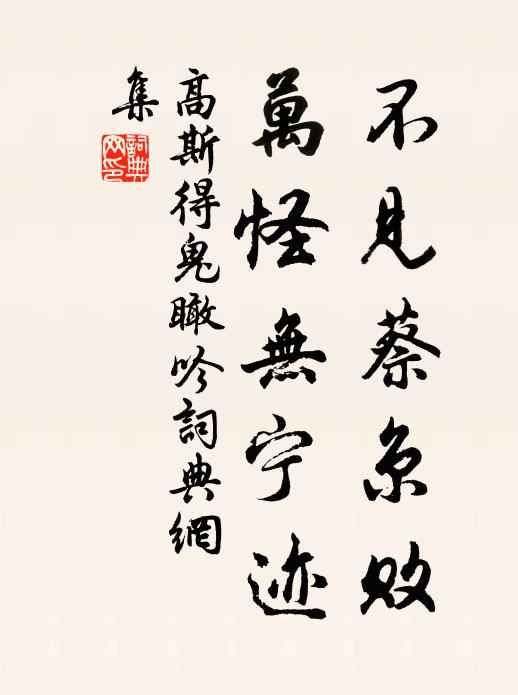 不見蔡京敗
萬怪無宁迹
高斯得鬼瞰吟詞典網
集
詞典網印